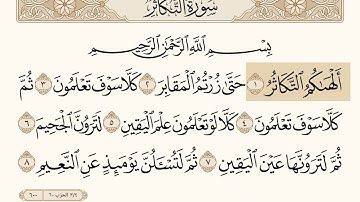 سُورَةُ التَّكَاثُرِ
بِسْمِ اللَّهِ الرَّحْمَٰنِ الرَّحِيمِ
أَلْهَىٰكُمُ التَّكَاثُرُ ١ حَتَّىٰ زُرْتُمُ الْمَقَابِرَ ٢ كَلَّا سَوْفَ تَعْلَمُونَ ٣ ثُمَّ
كَلَّا سَوْفَ تَعْلَمُونَ ٤ كَلَّا لَوْ تَعْلَمُونَ عِلْمَ الْيَقِينِ ٥ لَتَرَوُنَّ الْجَحِيمَ ٦
ثُمَّ لَتَرَوُنَّهَا عَيْنَ الْيَقِينِ ٧ ثُمَّ لَتُسْـَٔلُنَّ يَوْمَئِذٍ عَنِ النَّعِيمِ ٨
٦٠٠ ٣/٤ الحزب ٦٠